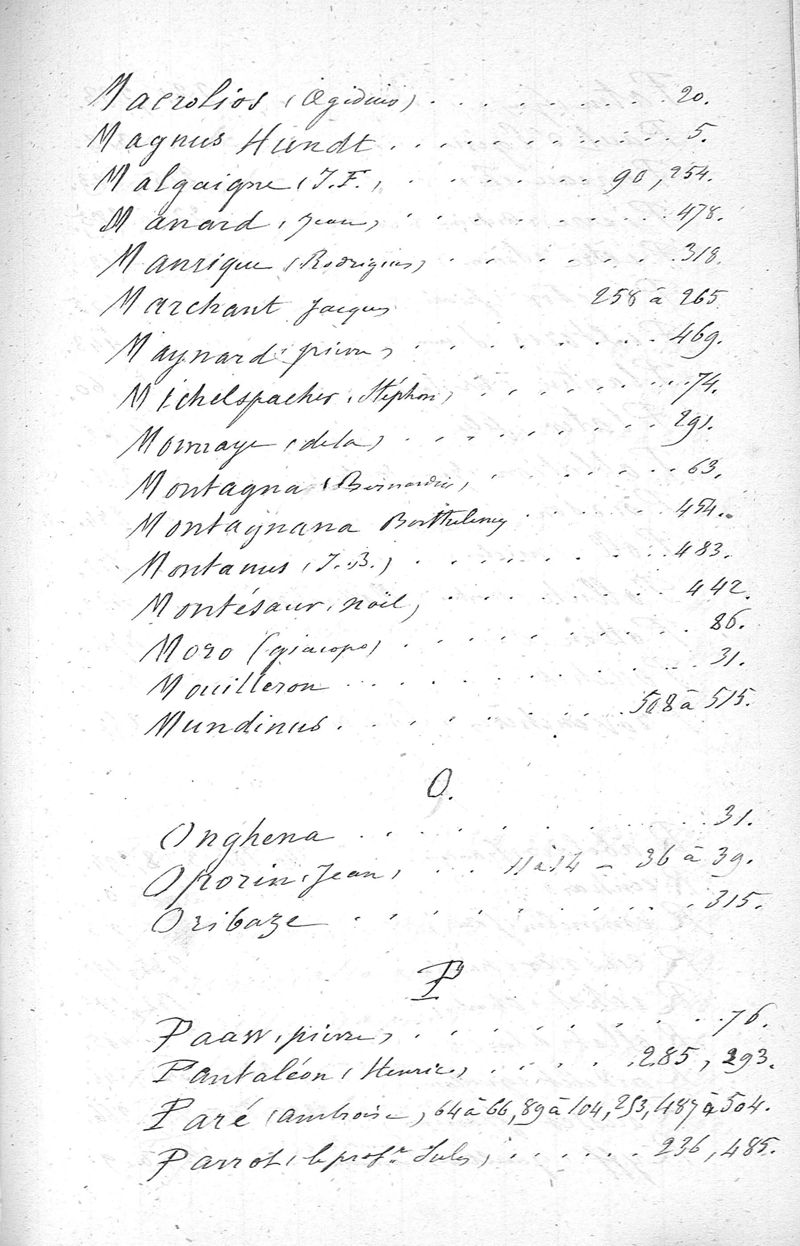 Macrolios (Ægidius) . . . . . . . 20.
Magnus Hundt . . . . . . . . . . . 5.
Malgaigne (J.F.) . . . . . . . 90, 254.
Manard (Jean) . . . . . . . . . 478.
Manrique (Rodrigius) . . . . . . . 318.
Marchant Jacques 258 à 265
Maynard (pierre) . . . . . . . . 469.
Michelspacher (Stéphan) . . . . . . 74.
(dela) . . . . . . . . 291.
Montagna (Bernardin) . . . . . . 63.
Montagnana Barthelemy . . . . . . 454.
Montanus (J.B.) . . . . . . . . 483.
Montésaur (noël) . . . . . . . . 442.
Moro (giacopo) . . . . . . . . . 86.
Mouilleron . . . . . . . . . . 31.
Mundinus . . . . . . . . . 508 à 515.
O.
Onghena . . . . . . . . . . 31.
Oporin (Jean) . . . 11 à 14 – 36 à 39.
Oribaze . . . . . . . . . . 315.
P
Paaw (pierre) . . . . . . . . . 76.
Pantaléon (Henric) . . . . . . 285, 293.
Paré (ambroise) 64 à 66, 89 à 104, 253, 487 à 504.
Parrot (le profr. Jules) . . . . . . 236, 485.